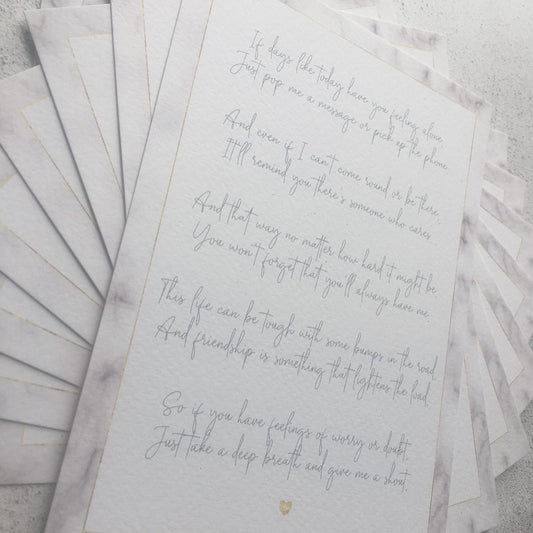 If days like today have you feeling alone
Just pop me a message or pick up the phone
And even if I can't come round or be there,
It'll remind you there's someone who cares
And that way no matter how hard it might be
You won't forget that you'll always have me
This life can be tough with some bumps in the road
And friendship is something that lightens the load.
So if you have feelings of worry or doubt,
Just take a deep breath and give me a shout.